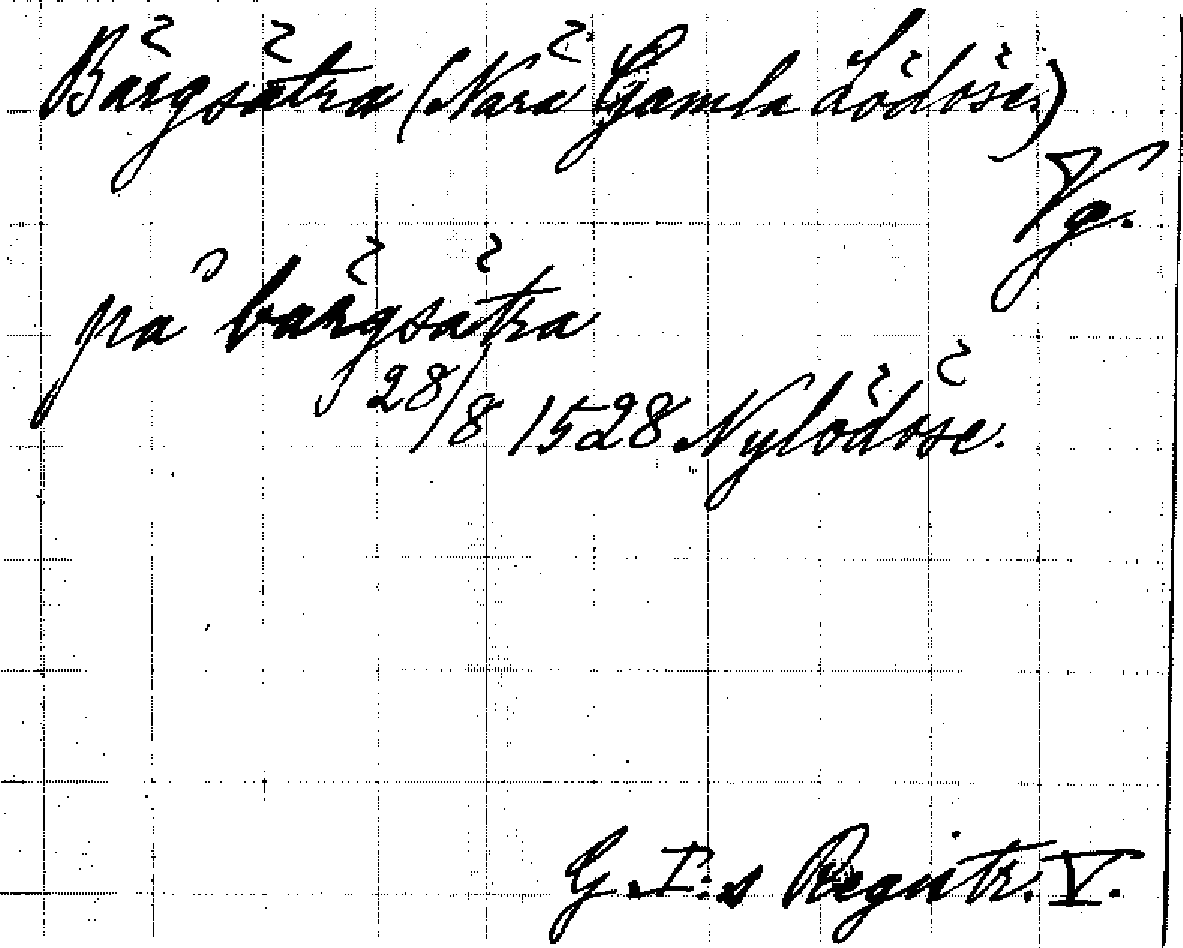 Bärgsätra (Nära Gamla Lödöse.)
Vg.
på bärgsätra
28/8 1528 Nylödöse.
G. I:s Registr. V.